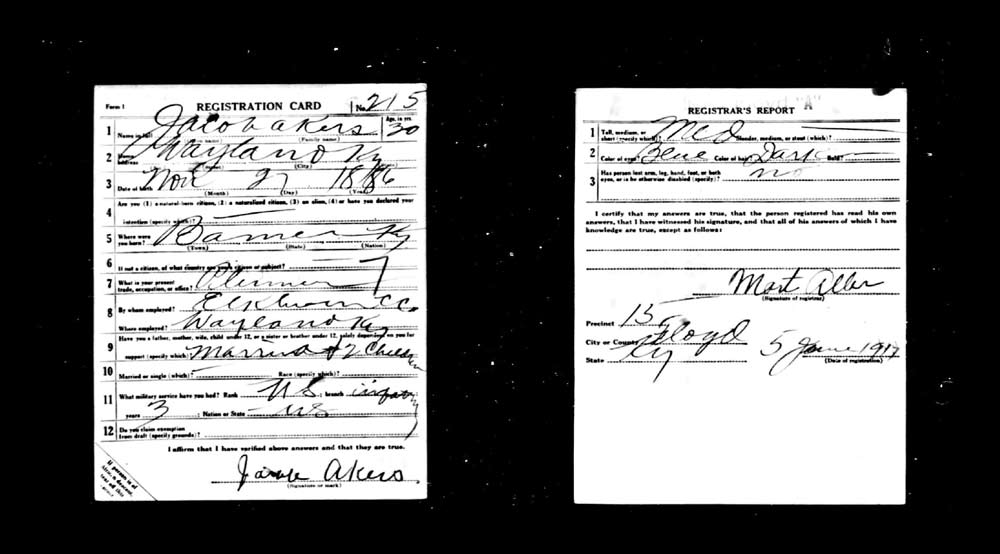 Form 1 REGISTRATION CARD No. 215
1 Name in full Jacob Akers Age, in yrs. 30
(Family name)
2 Home address Wayland Ky
(City)
3 Date of birth Nov 27 1886
(Month) (Day) (Year)
4 Are you (1) a natural-born citizen, (2) a naturalized citizen, (3) an alien, (4) or have you declared your
intention (specify which)?
5 Where were you born? Ky
(Town) (State) (Nation)
6 If not a citizen, of what country are you a citizen or subject?
7 What is your present trade, occupation, or office?
8 By whom employed? Elkhorn C.C.
Where employed? Wayland Ky
9 Have you a father, mother, wife, child under 12, or a sister or brother under 12, solely dependent on you for
support (specify which)? Married & 2 Children
10 Married or single (which)? Race (specify which)?
11 What military service have you had? Rank U.S. ; branch
years 3 ; Nation or State U.S.
12 Do you claim exemption from draft (specify grounds)?
I affirm that I have verified above answers and that they are true.
Akers
(Signature or mark)
If person is of African descent, tear off this corner
"A"
REGISTRAR'S REPORT
1 Tall, medium, or short (specify which)? Med Slender, medium, or stout (which)?
2 Color of eyes? Blue Color of hair? Dark Bald?
3 Has person lost arm, leg, hand, foot, or both eyes, or is he otherwise disabled (specify)? no
I certify that my answers are true, that the person registered has read his own
answers, that I have witnessed his signature, and that all of his answers of which I have
knowledge are true, except as follows:
Mart
(Signature of registrar)
Precinct 15
City or County Floyd
State Ky 5 June 1917
(Date of registration)